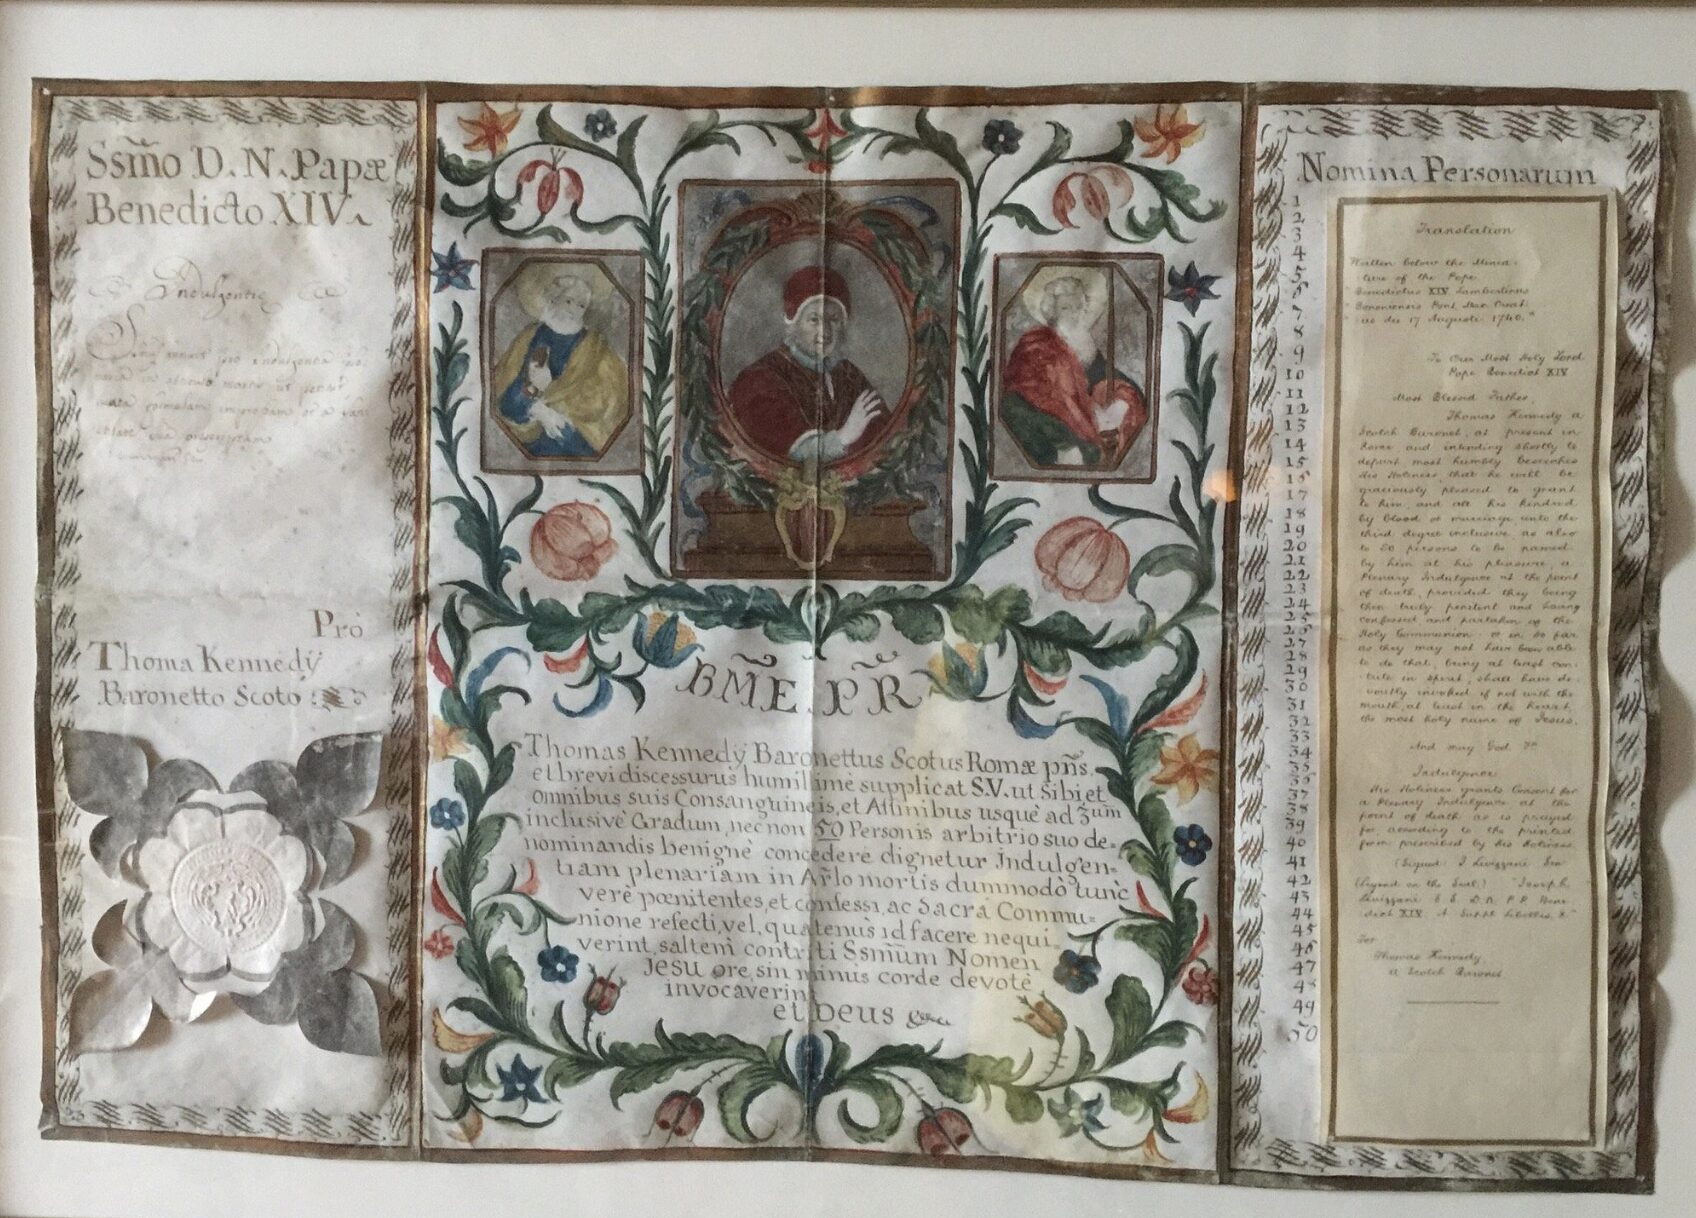 Ssm̃o D. N. Papæ
Benedicto XIV.
Indulgentiæ
Pro
Thoma Kennedÿ
Baronetto Scoto
BM̃E PR̃
Thomas Kennedÿ Baronettus Scotus Romæ pñs.
et brevi discessurus humillimè supplicat S.V. ut sibi et
omnibus suis Consanguineis, et Affinibus usquè ad 3um
inclusivè Gradum, nec non 50 Personis arbitrio suo de=
nominandis benignè concedere dignetur Indulgen=
tiam plenariam in Ar̃lo mortis dummodò tunc
verè pœnitentes, et confessi, ac Sacrá Commu=
nione refecti, vel, quatenus id facere nequi=
verint, saltem contriti Ssm̃um Nomen
JESU ore, sin minus corde devotè
invocaverint
et Deus
Nomina Personarum
1
2
3
4
5
6
7
8
9
10
11
12
13
14
15
16
17
18
19
20
21
22
23
24
25
26
27
28
29
30
31
32
33
34
35
36
37
38
39
40
41
42
43
44
45
46
47
48
49
50
Translation
Written below the Minia-
ture of the Pope
Benedictus XIV Lambertinus
Bononiensis Pont. Max. Creat-
us die 17 Augusti 1740."
To Our Most Holy Lord
Pope Benedict XIV
Most Blessed Father,
Thomas Kennedy a
Scotch Baronet, at present in
Rome and intending shortly to
depart most humbly beseeches
His Holiness that he will be
graciously pleased to grant
to him, and all his kindred
by blood or marriage unto the
third degree inclusive, as also
to 50 persons to be named
by him at his pleasure, a
Plenary Indulgence at the point
of death, provided they being
then truly penitent and having
confessed and partaken of the
Holy Communion: or in so far
as they may not have been able
to do that, being at least con-
trite in spirit, shall have de-
voutly invoked if not with the
mouth, at least in the heart,
the most holy name of Jesus.
And may God
Indulgence
His Holiness grants Consent for
a Plenary Indulgence at the
point of death as is prayed
for according to the printed
form prescribed by his Holiness.
(Signed) J. Livizzani
(Legend on the Seal) "Joseph
Livizzani
dict XIV. A Suppl. Libellis
For
Thomas Kennedy,
a Scotch Baronet